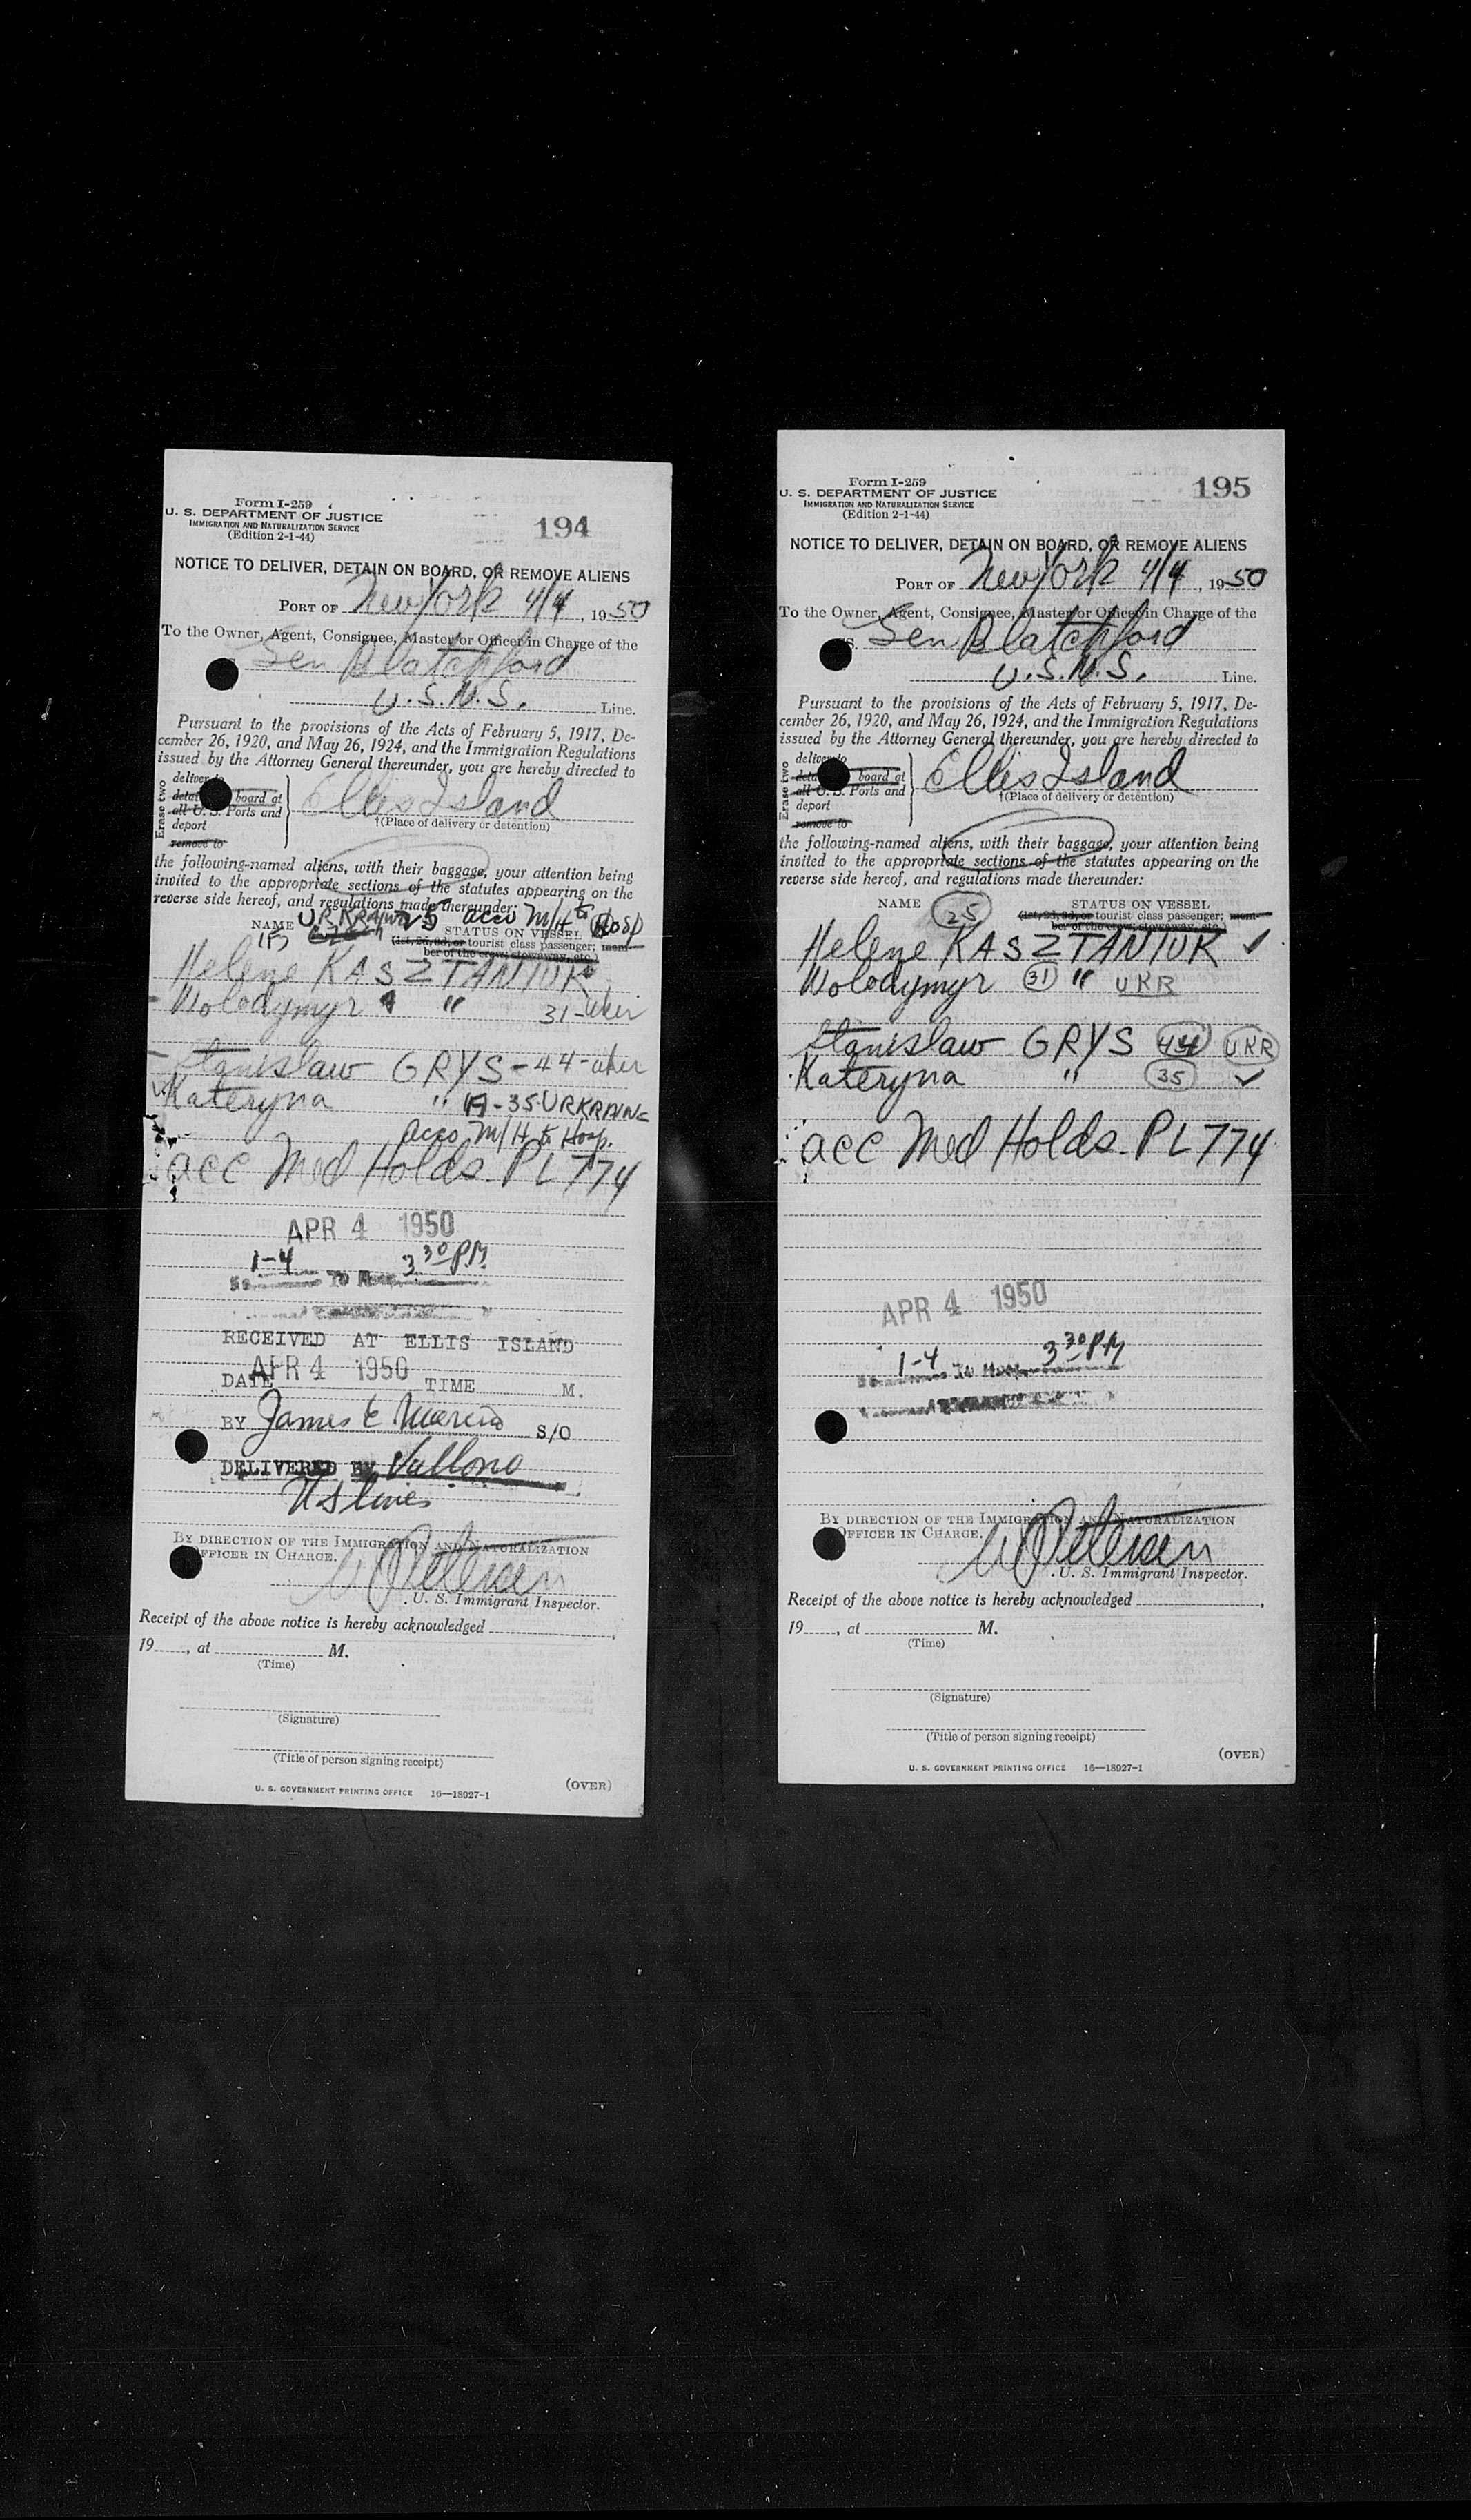 Form I-259
U. S. DEPARTMENT OF JUSTICE
IMMIGRATION AND NATURALIZATION SERVICE
(Edition 2-1-44)
194
NOTICE TO DELIVER, DETAIN ON BOARD, OR REMOVE ALIENS
PORT OF New York 4/4, 1950
To the Owner, Agent, Consignee, Master or Officer in Charge of the
Gen Blatchford
U.S.N.S. Line.
Pursuant to the provisions of the Acts of February 5, 1917, De-
cember 26, 1920, and May 26, 1924, and the Immigration Regulations
issued by the Attorney General thereunder, you are hereby directed to
Erase two
deliver to
detain board at
all U. S. Ports and
deport
remove to
Ellis Island
†(Place of delivery or detention)
the following-named aliens, with their baggage, your attention being
invited to the appropriate sections of the statutes appearing on the
reverse side hereof, and regulations made thereunder:
URKRAINE 25 acco M/H to Hosp
NAME STATUS ON VESSEL
(1st, 2d, 3d, or tourist class passenger; mem-
ber of the crew, stowaway, etc.)
Helene KASZTANIUK
Wolodymyr " 31-Uker
Stanislaw GRYS-44-uker
Kateryna " 35-URKRAINE
acco M/H to Hosp.
acc Med Holds. PL 774
APR 4 1950
1-4 3 30 PM
RECEIVED AT ELLIS ISLAND
APR 4 1950
DATE TIME M.
BY James E S/O
DELIVERED BY Vallono
US Lines
BY DIRECTION OF THE IMMIGRATION AND NATURALIZATION
OFFICER IN CHARGE.
Petersen
U. S. Immigrant Inspector.
Receipt of the above notice is hereby acknowledged
19, at M.
(Time)
(Signature)
(Title of person signing receipt)
(OVER)
U. S. GOVERNMENT PRINTING OFFICE 16—18927-1
Form I-259
U. S. DEPARTMENT OF JUSTICE
IMMIGRATION AND NATURALIZATION SERVICE
(Edition 2-1-44)
195
NOTICE TO DELIVER, DETAIN ON BOARD, OR REMOVE ALIENS
PORT OF New York 4/4, 1950
To the Owner, Agent, Consignee, Master or Officer in Charge of the
SS. Gen Blatchford
U.S.N.S. Line.
Pursuant to the provisions of the Acts of February 5, 1917, De-
cember 26, 1920, and May 26, 1924, and the Immigration Regulations
issued by the Attorney General thereunder, you are hereby directed to
Erase two
deliver to
detain board at
all U. S. Ports and
deport
remove to
Ellis Island
†(Place of delivery or detention)
the following-named aliens, with their baggage, your attention being
invited to the appropriate sections of the statutes appearing on the
reverse side hereof, and regulations made thereunder:
NAME 25 STATUS ON VESSEL
(1st, 2d, 3d, or tourist class passenger; mem-
ber of the crew, stowaway, etc.)
Helene KASZTANIUK ✓
Wolodymyr 31 " UKR
Stanislaw GRYS 44 UKR
Kateryna " 35 ✓
acc Med Holds. PL 774
APR 4 1950
1-4 3 30 PM
BY DIRECTION OF THE IMMIGRATION AND NATURALIZATION
OFFICER IN CHARGE.
Petersen
U. S. Immigrant Inspector.
Receipt of the above notice is hereby acknowledged
19, at M.
(Time)
(Signature)
(Title of person signing receipt)
(OVER)
U. S. GOVERNMENT PRINTING OFFICE 16—18927-1